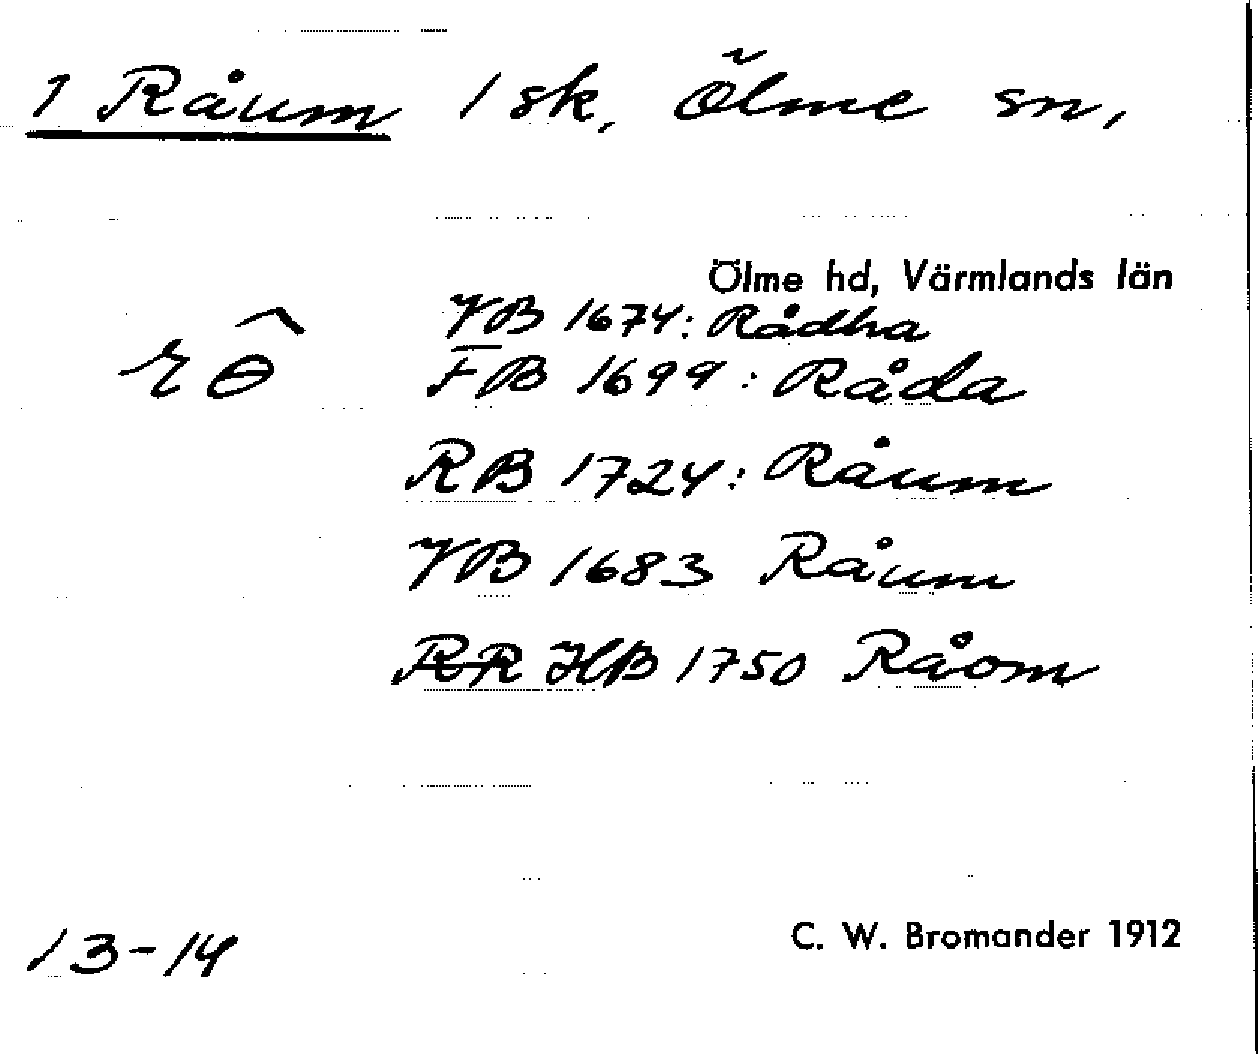 1 Råum 1 sk, Ölme sn,
Ölme hd, Värmlands län
VB 1674: Rådha
rɵ̂ FB 1699: Råda
RB 1724: Råum
VB 1683 Råum
RR HB 1750 Råom
13-14 C. W. Bromander 1912